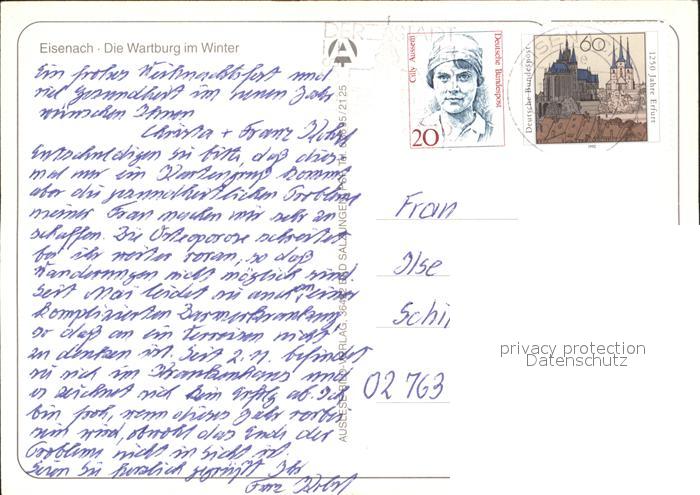 Eisenach · Die Wartburg im Winter
Ein frohes Weihnachtsfest und
viel Gesundheit im neuen Jahr
wünschen Ihnen
Christa + Franz
Entschuldigen Sie bitte, daß dies-
mal nur ein Kartengruß kommt
aber die gesundheitlichen Probleme
meiner Frau machen mir sehr zu
schaffen. Die Osteoporose schreitet
bei ihr weiter voran, so daß
Wanderungen nicht möglich sind.
Seit Mai leidet sie auch an einer
komplizierten Darmerkrankung
so daß an ein Verreisen nicht
zu denken ist. Seit 2.11. befindet
sie sich im Krankenhaus und
es zeichnet sich kein Erfolg ab. Ich
bin froh, wenn dieses Jahr vorbei
sein wird, obwohl das Ende der
Probleme nicht in Sicht ist.
Seien Sie herzlich gegrüßt Ihr
Franz
AUSLESE-BILD-VERLAG, 36432 BAD SALZUNGEN
Cilly Aussem
Deutsche Bundespost
20
Deutsche Bundespost
60
1250 Jahre Erfurt
1992
Frau
Ilse
Schi
02763
privacy protection
Datenschutz